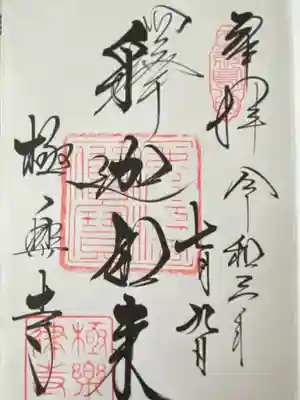 奉拝 令和三年
七月九日
釋迦如来
極楽寺
極樂
律寺